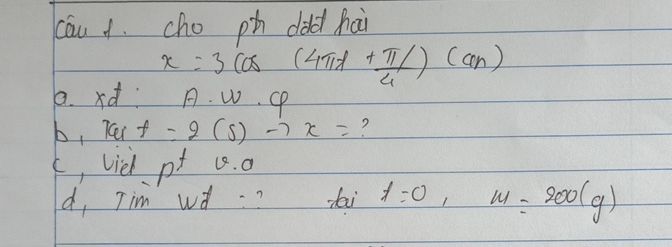 Câu 1. cho pt dđđ hoà
x = 3 cos (4πt + π/4) (cm)
a. xđ: A. w. φ
b, Tại t = 2 (s) → x = ?
c, Viết pt v.a
d, Tìm wđ = ? tại t=0, m = 200(g)